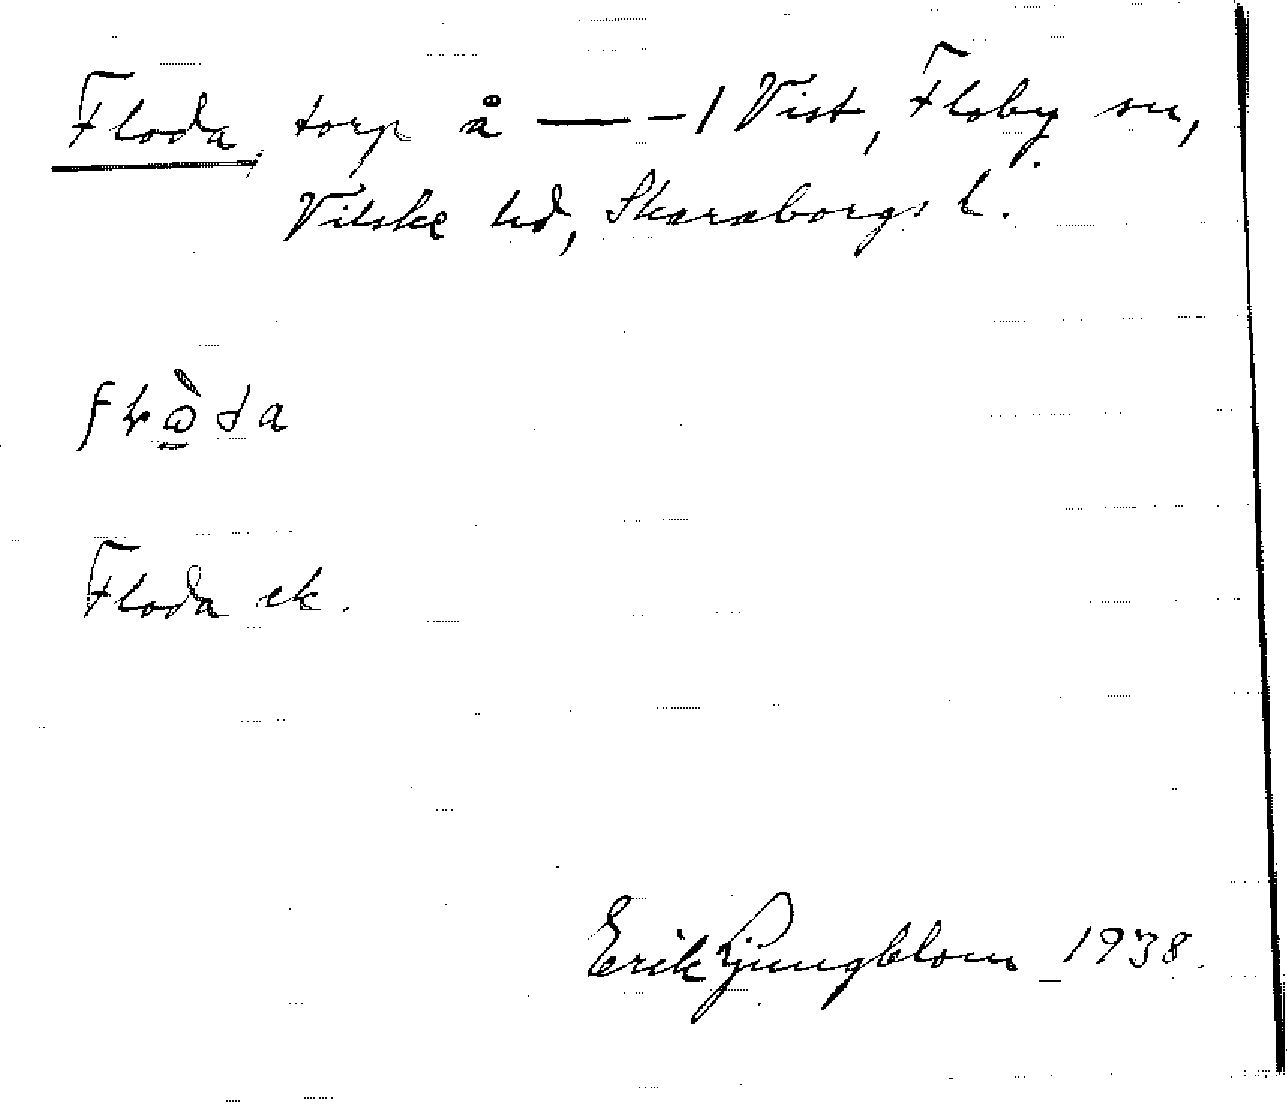 Floda, torp å — – 1 Vist, Floby sn,
Vilske hd, Skaraborgs l.
Floda ek.
Erik Ljungblom 1938.